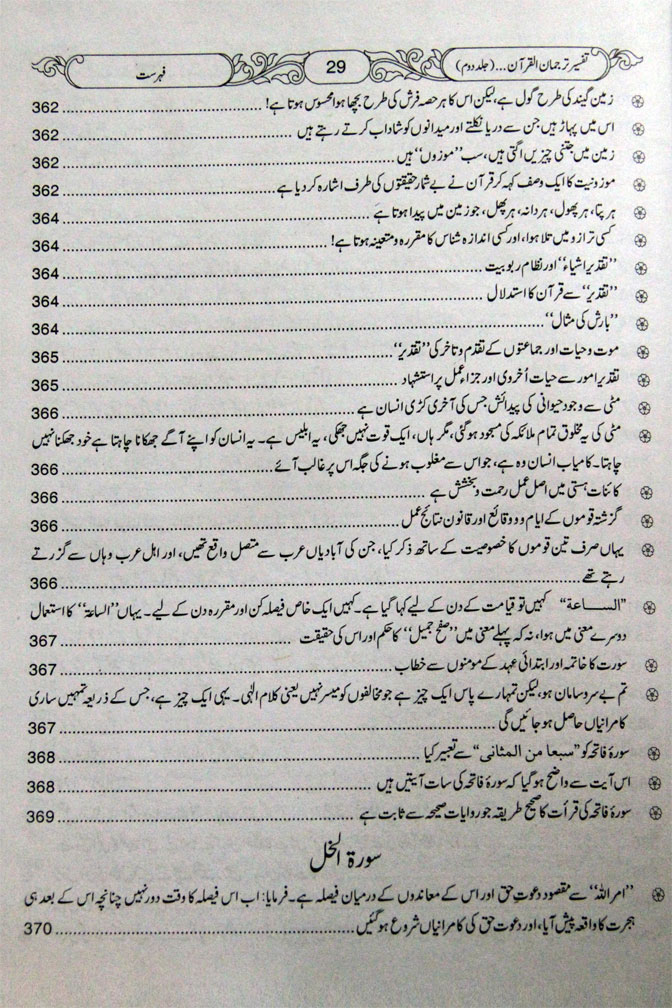 تفسیر ترجمان القرآن...(جلد دوم) 29 فہرست
زمین گیند کی طرح گول ہے، لیکن اس کا ہر حصہ فرش کی طرح بچھا ہوا محسوس ہوتا ہے! 362
اس میں پہاڑ ہیں جن سے دریا نکلتے اور میدانوں کو شاداب کرتے رہتے ہیں 362
زمین میں جتنی چیزیں اُگتی ہیں، سب ”موزوں“ ہیں 362
موزونیت کا ایک وصف کہہ کر قرآن نے بے شمار حقیقتوں کی طرف اشارہ کردیا ہے 362
ہر پتا، ہر پھول، ہر دانہ، ہر پھل، جو زمین میں پیدا ہوتا ہے 364
کسی ترازو میں تلا ہوا، اور کسی اندازہ شناس کا مقررہ و متعینہ ہوتا ہے! 364
”تقدیر اشیاء“ اور نظام ربوبیت 364
”تقدیر“ سے قرآن کا استدلال 364
”بارش کی مثال“ 364
موت و حیات اور جماعتوں کے تقدم و تاخر کی ”تقدیر“ 365
تقدیر امور سے حیات اُخروی اور جزاء عمل پر استشہاد 365
مٹی سے وجود حیوانی کی پیدائش جس کی آخری کڑی انسان ہے 366
مٹی کی یہ مخلوق تمام ملائکہ کی مسجود ہوگئی، مگر ہاں، ایک قوت نہیں جھکی، یہ ابلیس ہے۔ یہ انسان کو اپنے آگے جھکانا چاہتا ہے خود جھکنا نہیں
چاہتا۔ کامیاب انسان وہ ہے، جو اس سے مغلوب ہونے کی جگہ اس پر غالب آئے 366
کائنات ہستی میں اصل عمل رحمت و بخشش ہے 366
گزشتہ قوموں کے ایام و وقائع اور قانون نتائج عمل 366
یہاں صرف تین قوموں کا خصوصیت کے ساتھ ذکر کیا، جن کی آبادیاں عرب سے متصل واقع تھیں، اور اہل عرب وہاں سے گزرتے
رہتے تھے 366
”الساعة“ کہیں تو قیامت کے دن کے لیے کہا گیا ہے۔ کہیں ایک خاص فیصلہ کن اور مقررہ دن کے لیے۔ یہاں ”الساعۃ“ کا استعمال
دوسرے معنی میں ہوا، نہ کہ پہلے معنی میں ”صفح جمیل“ کا حکم اور اس کی حقیقت 367
سورت کا خاتمہ اور ابتدائی عہد کے مومنوں سے خطاب 367
تم بے سروسامان ہو، لیکن تمہارے پاس ایک چیز ہے جو مخالفوں کو میسر نہیں یعنی کلام الٰہی۔ یہی ایک چیز ہے، جس کے ذریعہ تمہیں ساری
کامرانیاں حاصل ہوجائیں گی 367
سورۂ فاتحہ کو ”سبعا من المثانی“ سے تعبیر کیا 368
اس آیت سے واضح ہوگیا کہ سورۂ فاتحہ کی سات آیتیں ہیں 368
سورۂ فاتحہ کی قرأت کا صحیح طریقہ جو روایات صحیحہ سے ثابت ہے 369
سورۃ النحل
”امر اللہ“ سے مقصود دعوتِ حق اور اس کے معاندوں کے درمیان فیصلہ ہے۔ فرمایا: اب اس فیصلہ کا وقت دور نہیں چنانچہ اس کے بعد ہی
ہجرت کا واقعہ پیش آیا، اور دعوت حق کی کامرانیاں شروع ہوگئیں 370